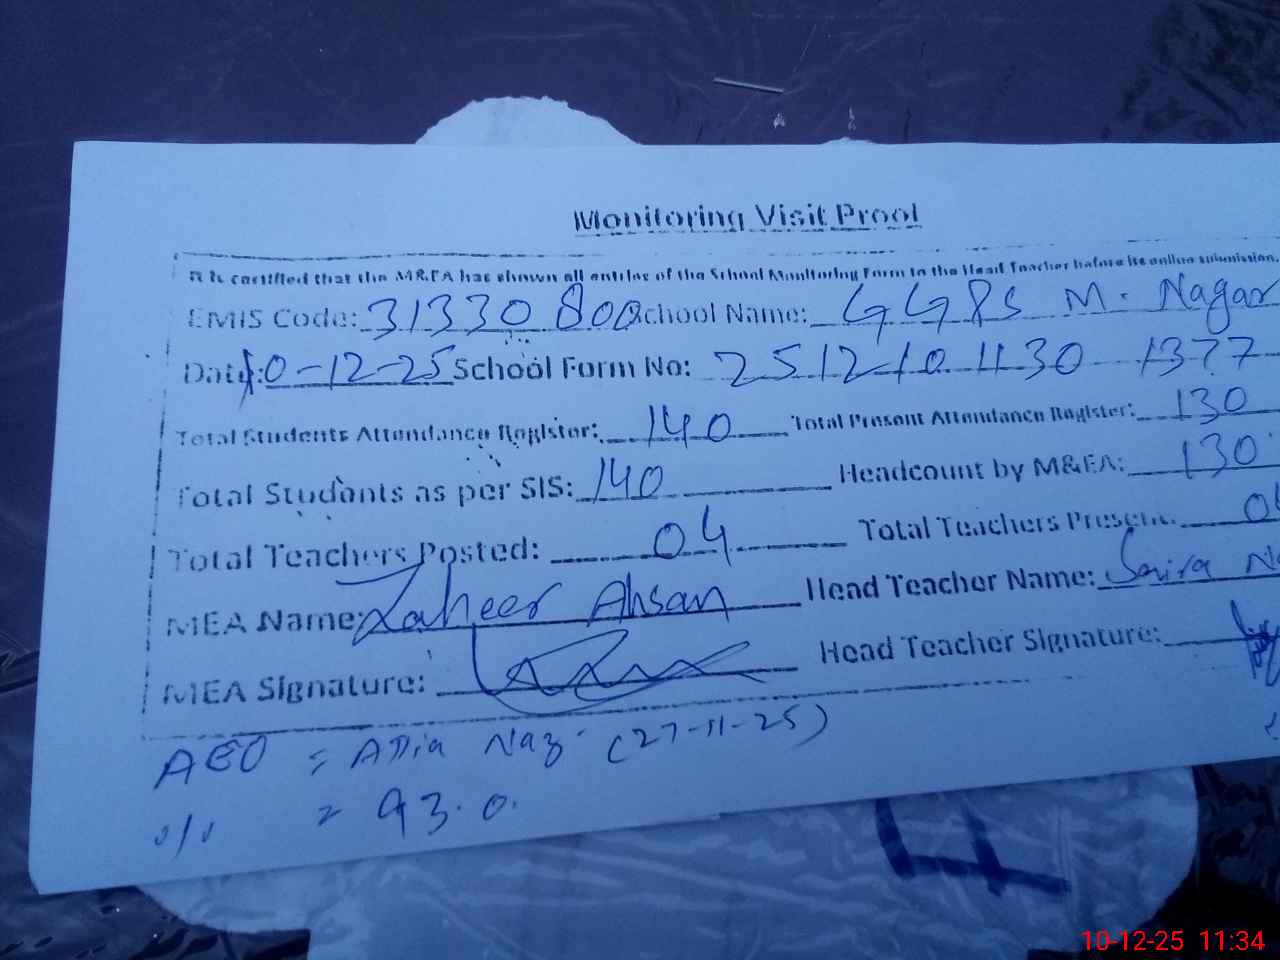 Monitoring Visit Proof
It is certified that the M&EA has shown all entries of the School Monitoring Form to the Head Teacher before its online submission.
EMIS Code: 31330800 School Name: GGPS M. Nagar
Date: 10-12-25 School Form No: 25121011301377
Total Students Attendance Register: 140 Total Present Attendance Register: 130
Total Students as per SIS: 140 Headcount by M&EA: 130
Total Teachers Posted: 04 Total Teachers Present:
MEA Name: Zaheer Ahsan Head Teacher Name: Saira
MEA Signature: Head Teacher Signature:
AEO = Naz (27-11-25)
= 93.0
4
10-12-25 11:34